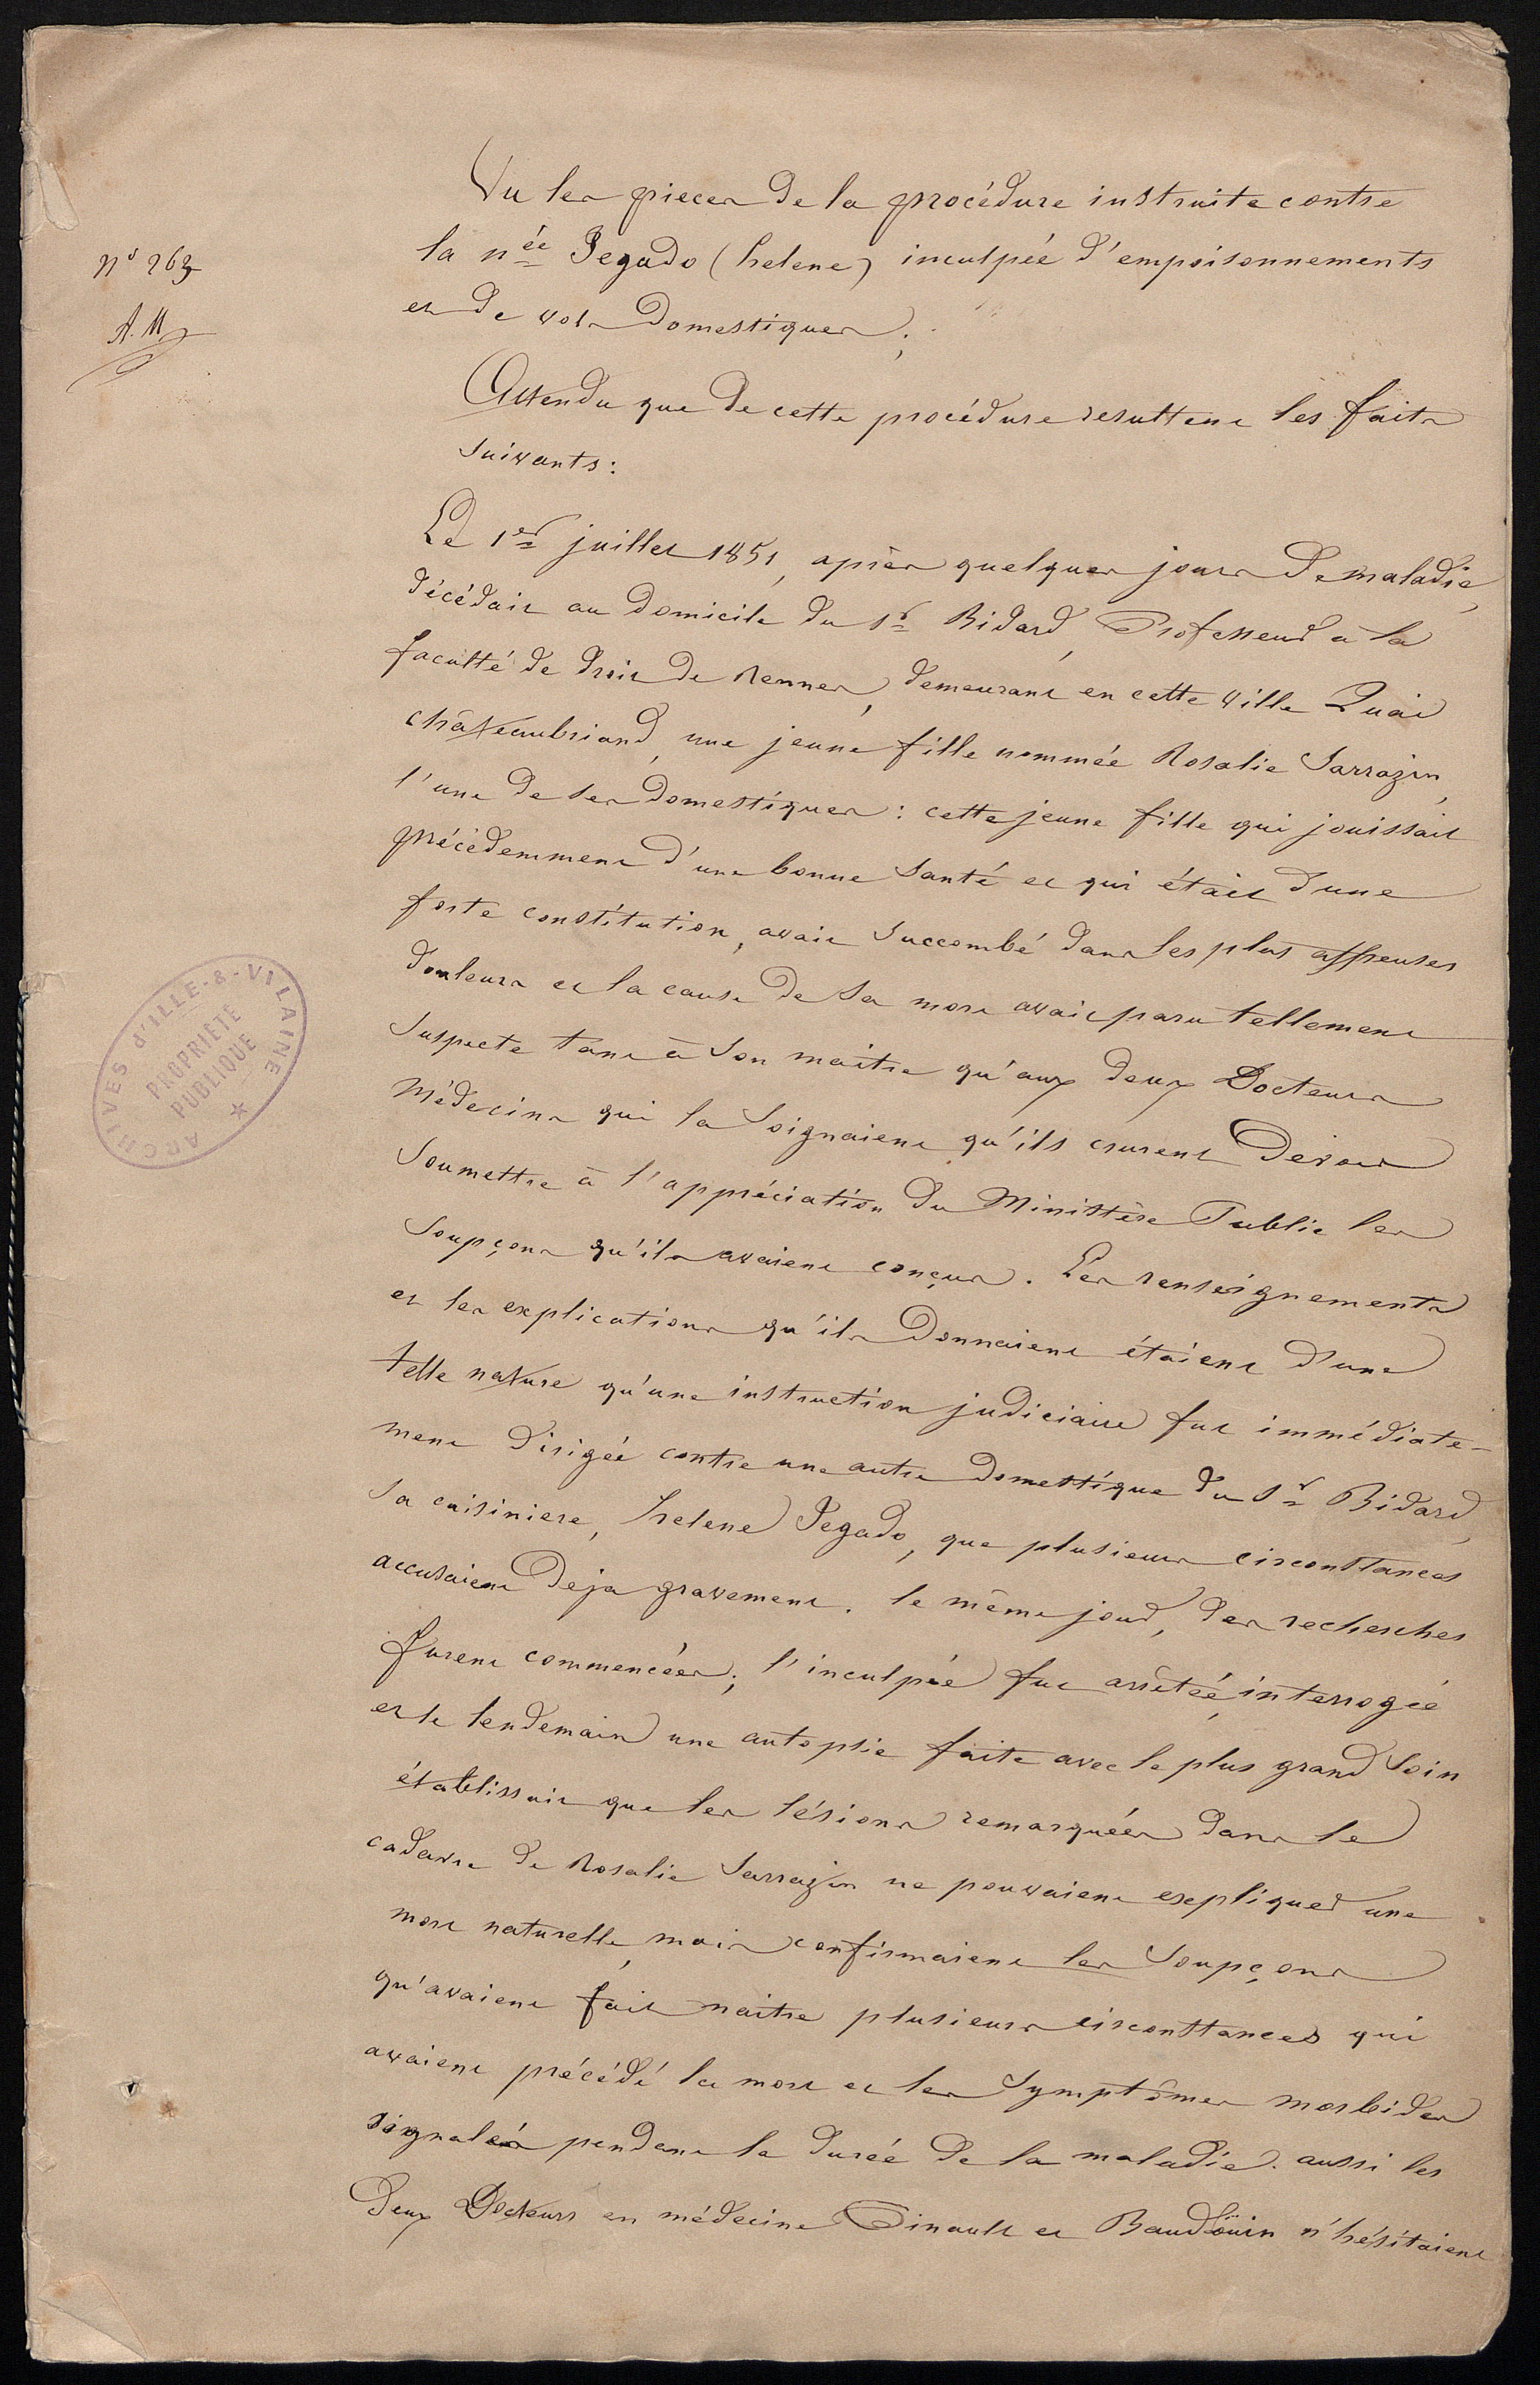 Vu les pieces de la procédure instruite contre
la n^ée Jegado (helene) inculpée d'empoisonnements
et de vols domestiques;
Attendu que de cette procédure resultent les faits
suivants:
Le 1^er juillet 1851, après quelques jours de maladie,
décédait au domicile du S^r Bidard, Professeur à la
faculté de droit de Rennes, demeurant en cette ville Quai
châteaubriand, une jeune fille nommée Rosalie Sarrazin,
l'une de ses domestiques: cette jeune fille qui jouissait
précédemment d'une bonne santé et qui était d'une
forte constitution, avait succombé dans les plus affreuses
douleurs et la cause de sa mort avait paru tellement
suspecte tant à son maitre qu'aux deux Docteurs
Médecins qui la soignaient qu'ils crurent devoir
soumettre à l'appréciation du Ministère Public les
soupçons qu'ils avaient conçus. Les renseignements
et les explications qu'ils donnaient étaient d'une
telle nature qu'une instruction judiciaire fut immédiate-
ment dirigée contre une autre domestique du S^r Bidard,
sa cuisiniere, helene Jegado, que plusieurs circonstances
accusaient deja gravement. le même jour, des recherches
furent commencées; l'inculpée fut arrêtée, interrogée
et le lendemain une autopsie faite avec le plus grand soin
établissait que les lésions remarquées dans le
cadavre de Rosalie Sarrazin ne pouvaient expliquer une
mort naturelle, mais confirmaient les soupçons
qu'avaient fait naitre plusieurs circonstances qui
avaient précédé la mort et les symptômes morbides
signalés pendant la durée de la maladie. aussi les
deux Docteurs en médecine Pinault et Baudoüin n'hésitaient
N° 263
A.M
ARCHIVES d'ILLE-&-VILAINE
PROPRIÉTÉ
PUBLIQUE